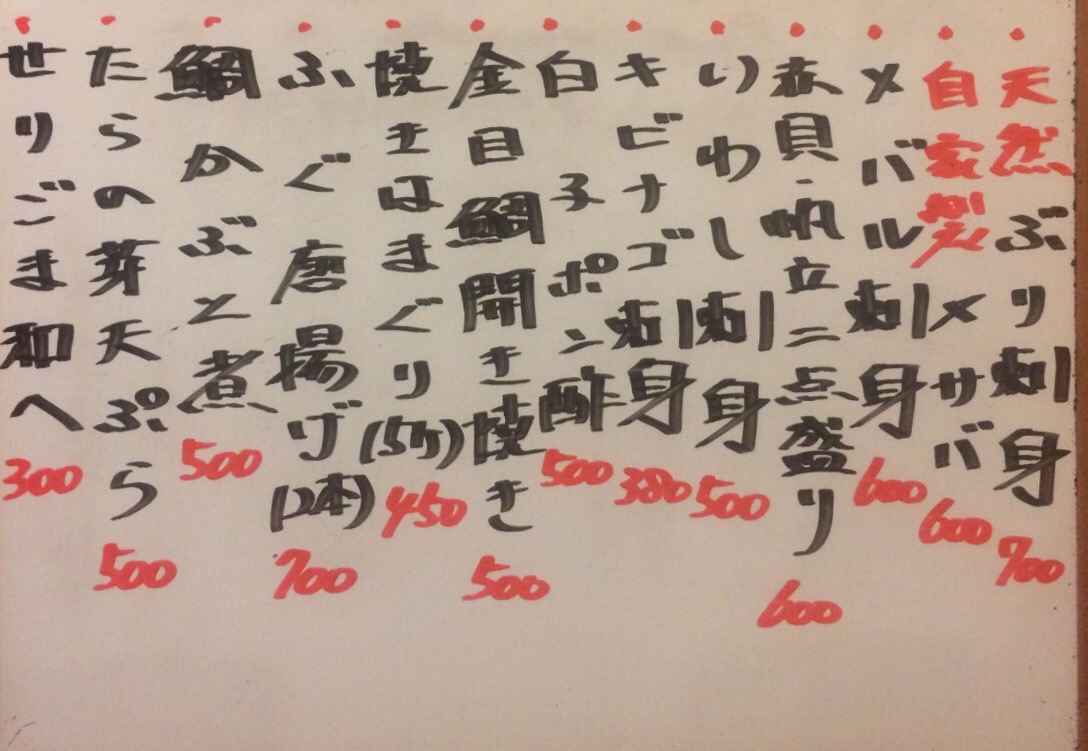 天然ぶり刺身 700
自家製メサバ 600
メバル刺身 600
赤貝・帆立二点盛り 600
いわし刺身 500
キビナゴ刺身 380
白子ポン酢 500
金目鯛開き焼き 500
焼きはまぐり(5ケ) 450
ふぐ唐揚げ(2本) 700
鯛かぶと煮 500
たらの芽天ぷら 500
せりごま和へ 300